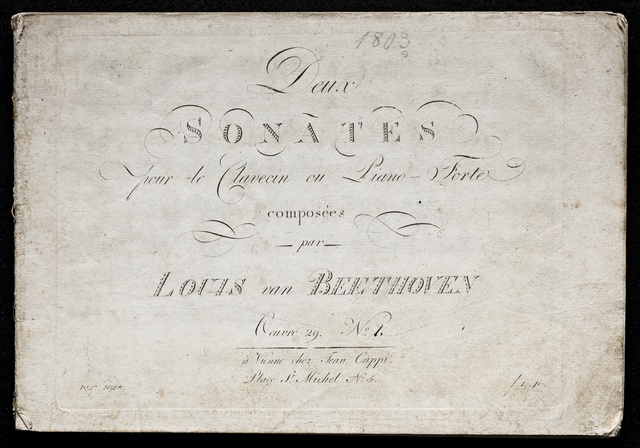 1803
Deux
SONATES
pour le Clavecin ou Piano-Forte
composées
— par —
LOUIS van BEETHOVEN
Oeuvre 29. No. 1.
à Vienne chez Jean Cappi.
Place St. Michel No. 5.